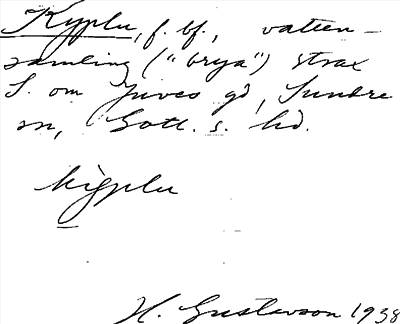 Kyplu, f. bf., vatten-
samling ("brya") strax
S. om Juves gd, Sundre
sn, Gotl. s. hd.
kỳplu
H. Gustavson 1938